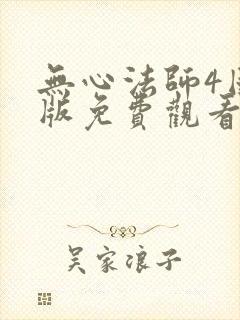 無心法師4
版免費觀看
吳家浪子